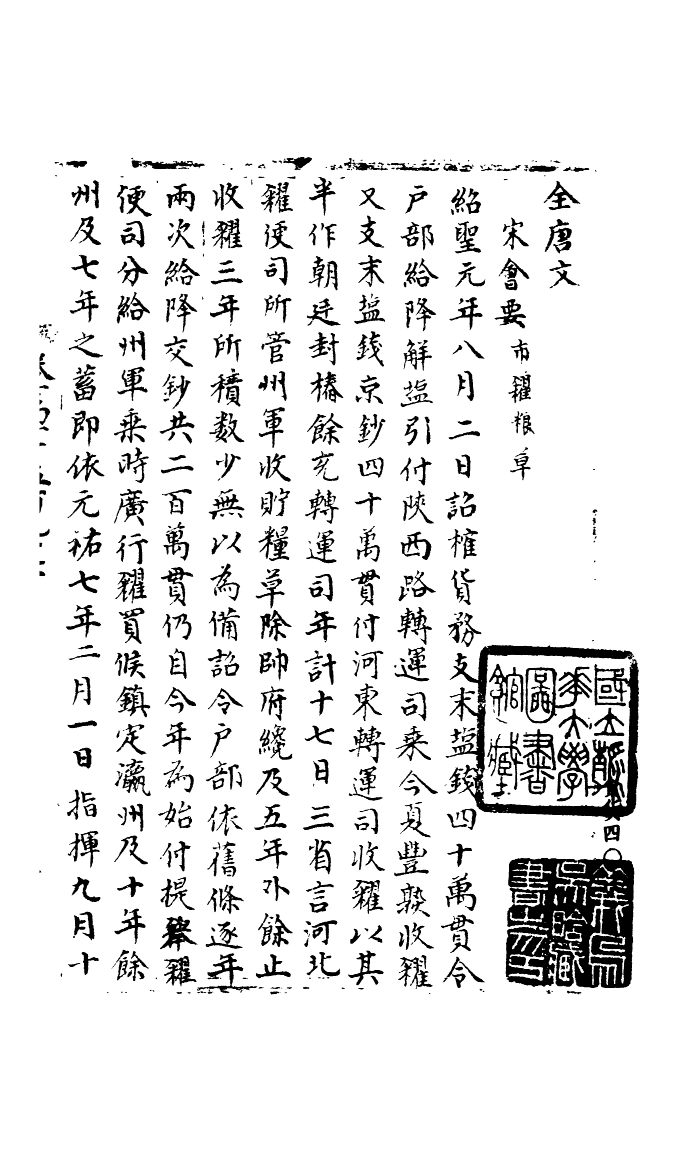 全唐文
宋會要 市糴粮草
紹聖元年八月二日詔榷貨務支末塩錢四十萬貫令
戶部給降解塩引付陝西路轉運司乘今夏豐熟收糴
又支末塩錢京鈔四十萬貫付河東轉運司收糴以其
半作朝廷封樁餘充轉運司年計十七日三省言河北
糴便司所管州軍收貯糧草除帥府纔及五年外餘止
收糴三年所積數少無以為備詔令戶部依舊條逐年
兩次給降交鈔共二百萬貫仍自今年為始付提舉糴
便司分給州軍乘時廣行糴買候鎮定瀛州及十年餘
州及七年之蓄即依元祐七年二月一日指揮九月十
國立清華大學圖書館藏
義烏吳晗藏書之印